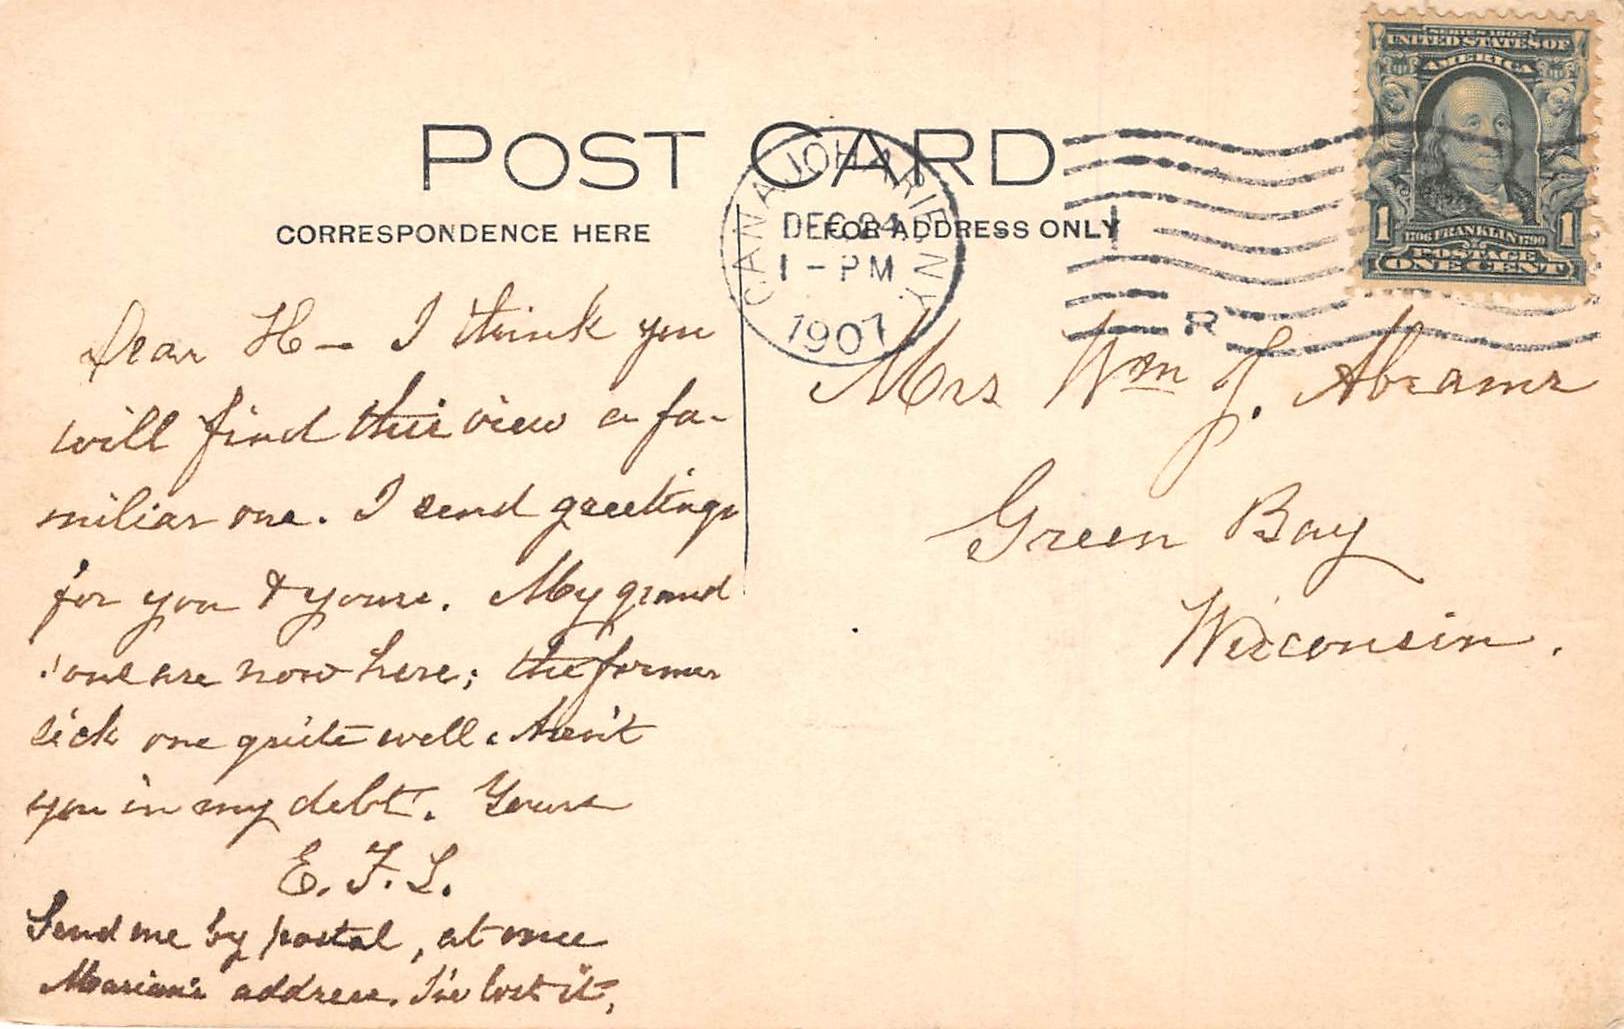 POST CARD
CORRESPONDENCE HERE
FOR ADDRESS ONLY
CANAJOHARIE N.Y.
DEC 24
1 - PM
1907
R
SERIES 1902
UNITED STATES OF
AMERICA
1 1706 FRANKLIN 1790 1
POSTAGE
ONE CENT
Dear H— I think you
will find this view a fa-
miliar one. I send greetings
for you & yours. My grand
sons are now here; the former
sick one quite well.
you in my debt. Yours
E. F. L.
Send me by postal, at once
Marian's address. I've lost it.
Mrs Wm J. Abrams
Green Bay
Wisconsin.